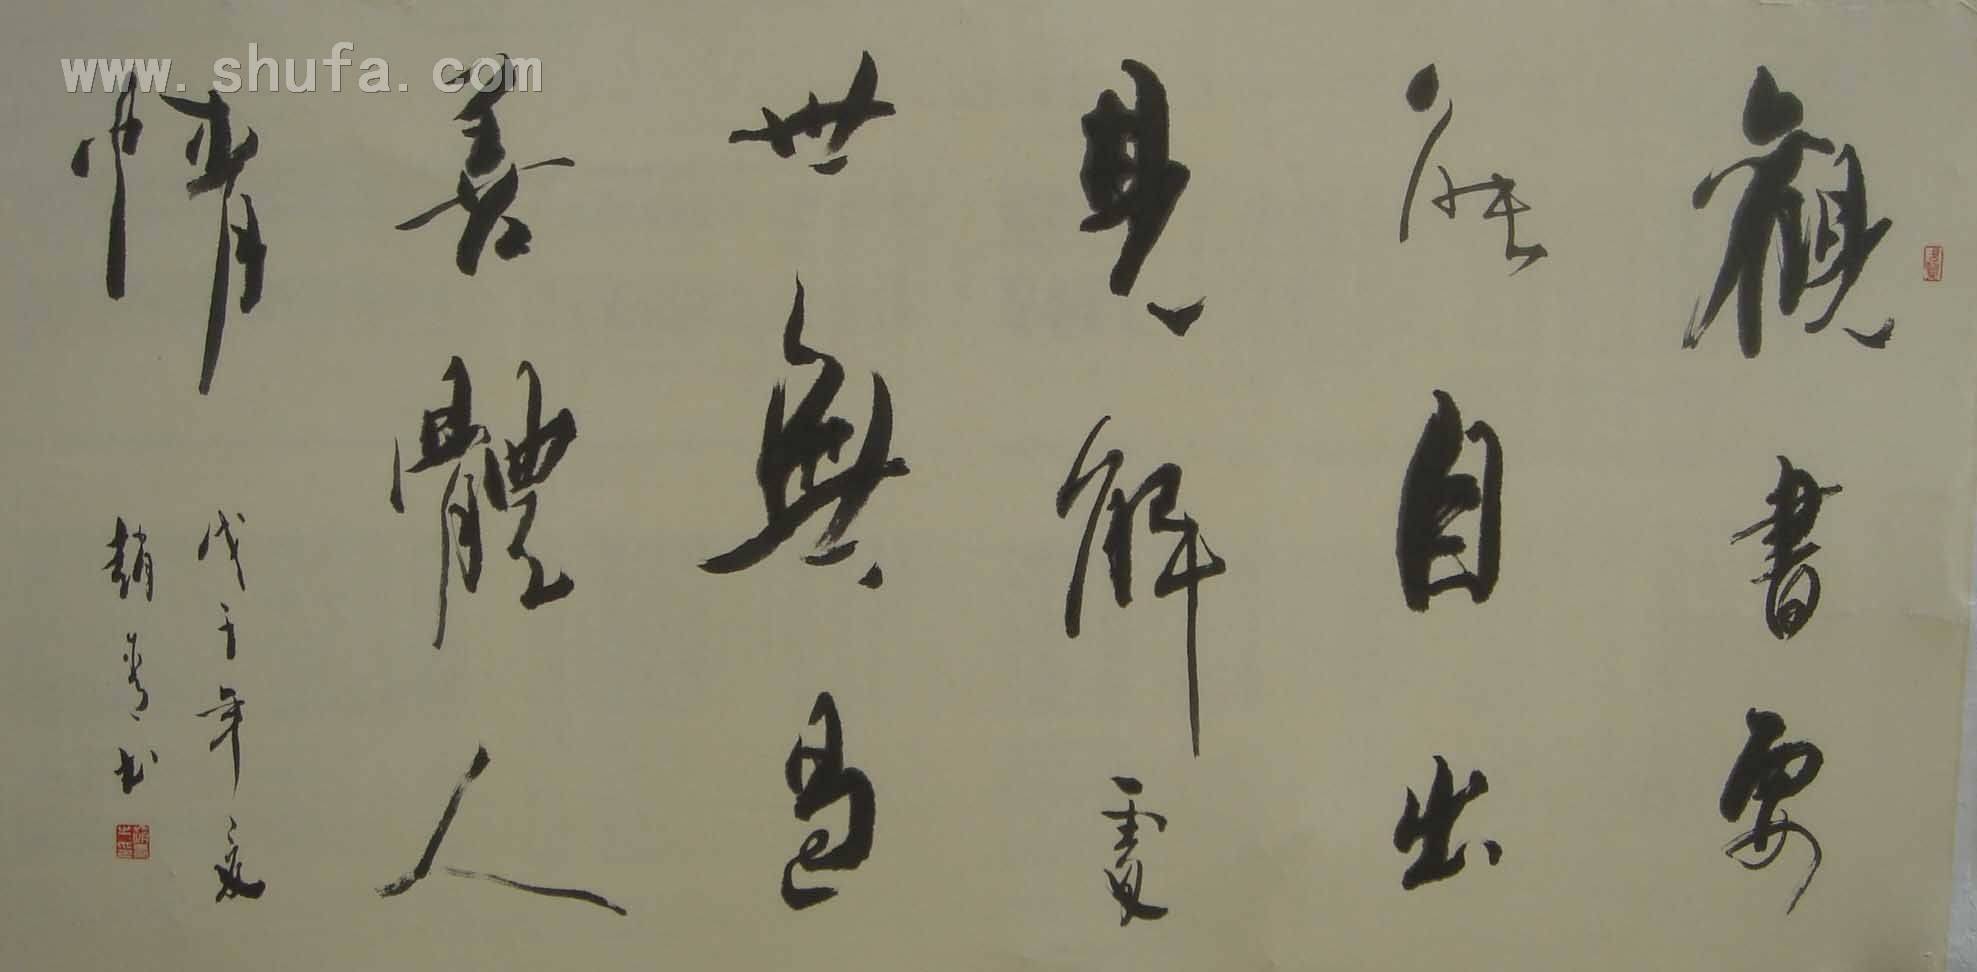 www.shufa.com
觀書要
能自出
見解處
世無過
善體人
情
戊子年夏
趙 書